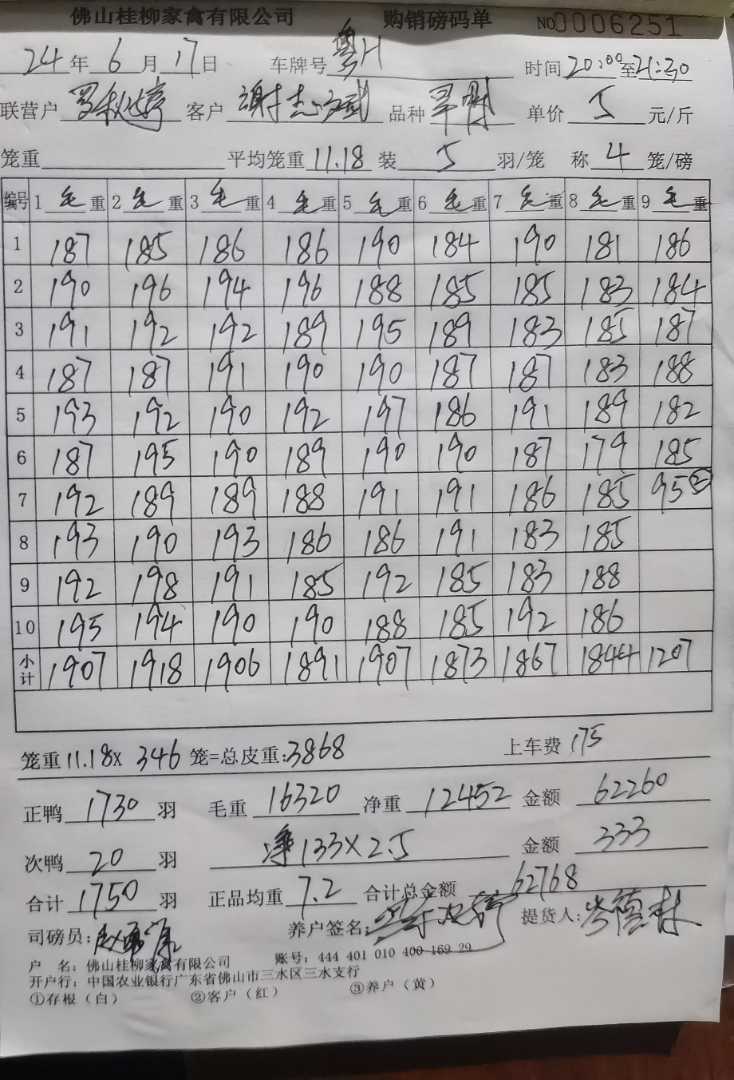 佛山桂柳家禽有限公司 购销磅码单 NO 0006251
24年 6月 17日 车牌号 粤H 时间20:00至21:30
联营户 客户 谢 品种 单价 5 元/斤
笼重 平均笼重 11.18 装 5 羽/笼 称 4 笼/磅
编号 1 毛重 2 毛重 3 毛重 4 毛重 5 毛重 6 毛重 7 毛重 8 毛重 9 毛重
1 187 185 186 186 190 184 190 181 186
2 190 196 194 196 188 185 185 183 184
3 191 192 192 189 195 189 183 185 187
4 187 187 191 190 190 187 187 183 188
5 193 192 190 192 197 186 191 189 182
6 187 195 190 189 190 190 187 179 185
7 192 189 189 188 191 191 186 185 95②
8 193 190 193 186 186 191 183 185
9 192 198 191 185 192 185 183 188
10 195 194 190 190 188 185 192 186
小计 1907 1918 1906 1891 1907 1873 1867 1844 1207
笼重 11.18× 346 笼=总皮重:3868 上车费 175
正鸭 1730 羽 毛重 16320 净重 12452 金额 62260
次鸭 20 羽 净133×2.5 金额 333
合计 1750 羽 正品均重 7.2 合计总金额 62768
司磅员: 养户签名: 提货人:岑德林
户 名:佛山桂柳家禽有限公司 账号:444 401 010 400 169 29
开户行:中国农业银行广东省佛山市三水区三水支行
①存根(白) ②客户(红) ③养户(黄)